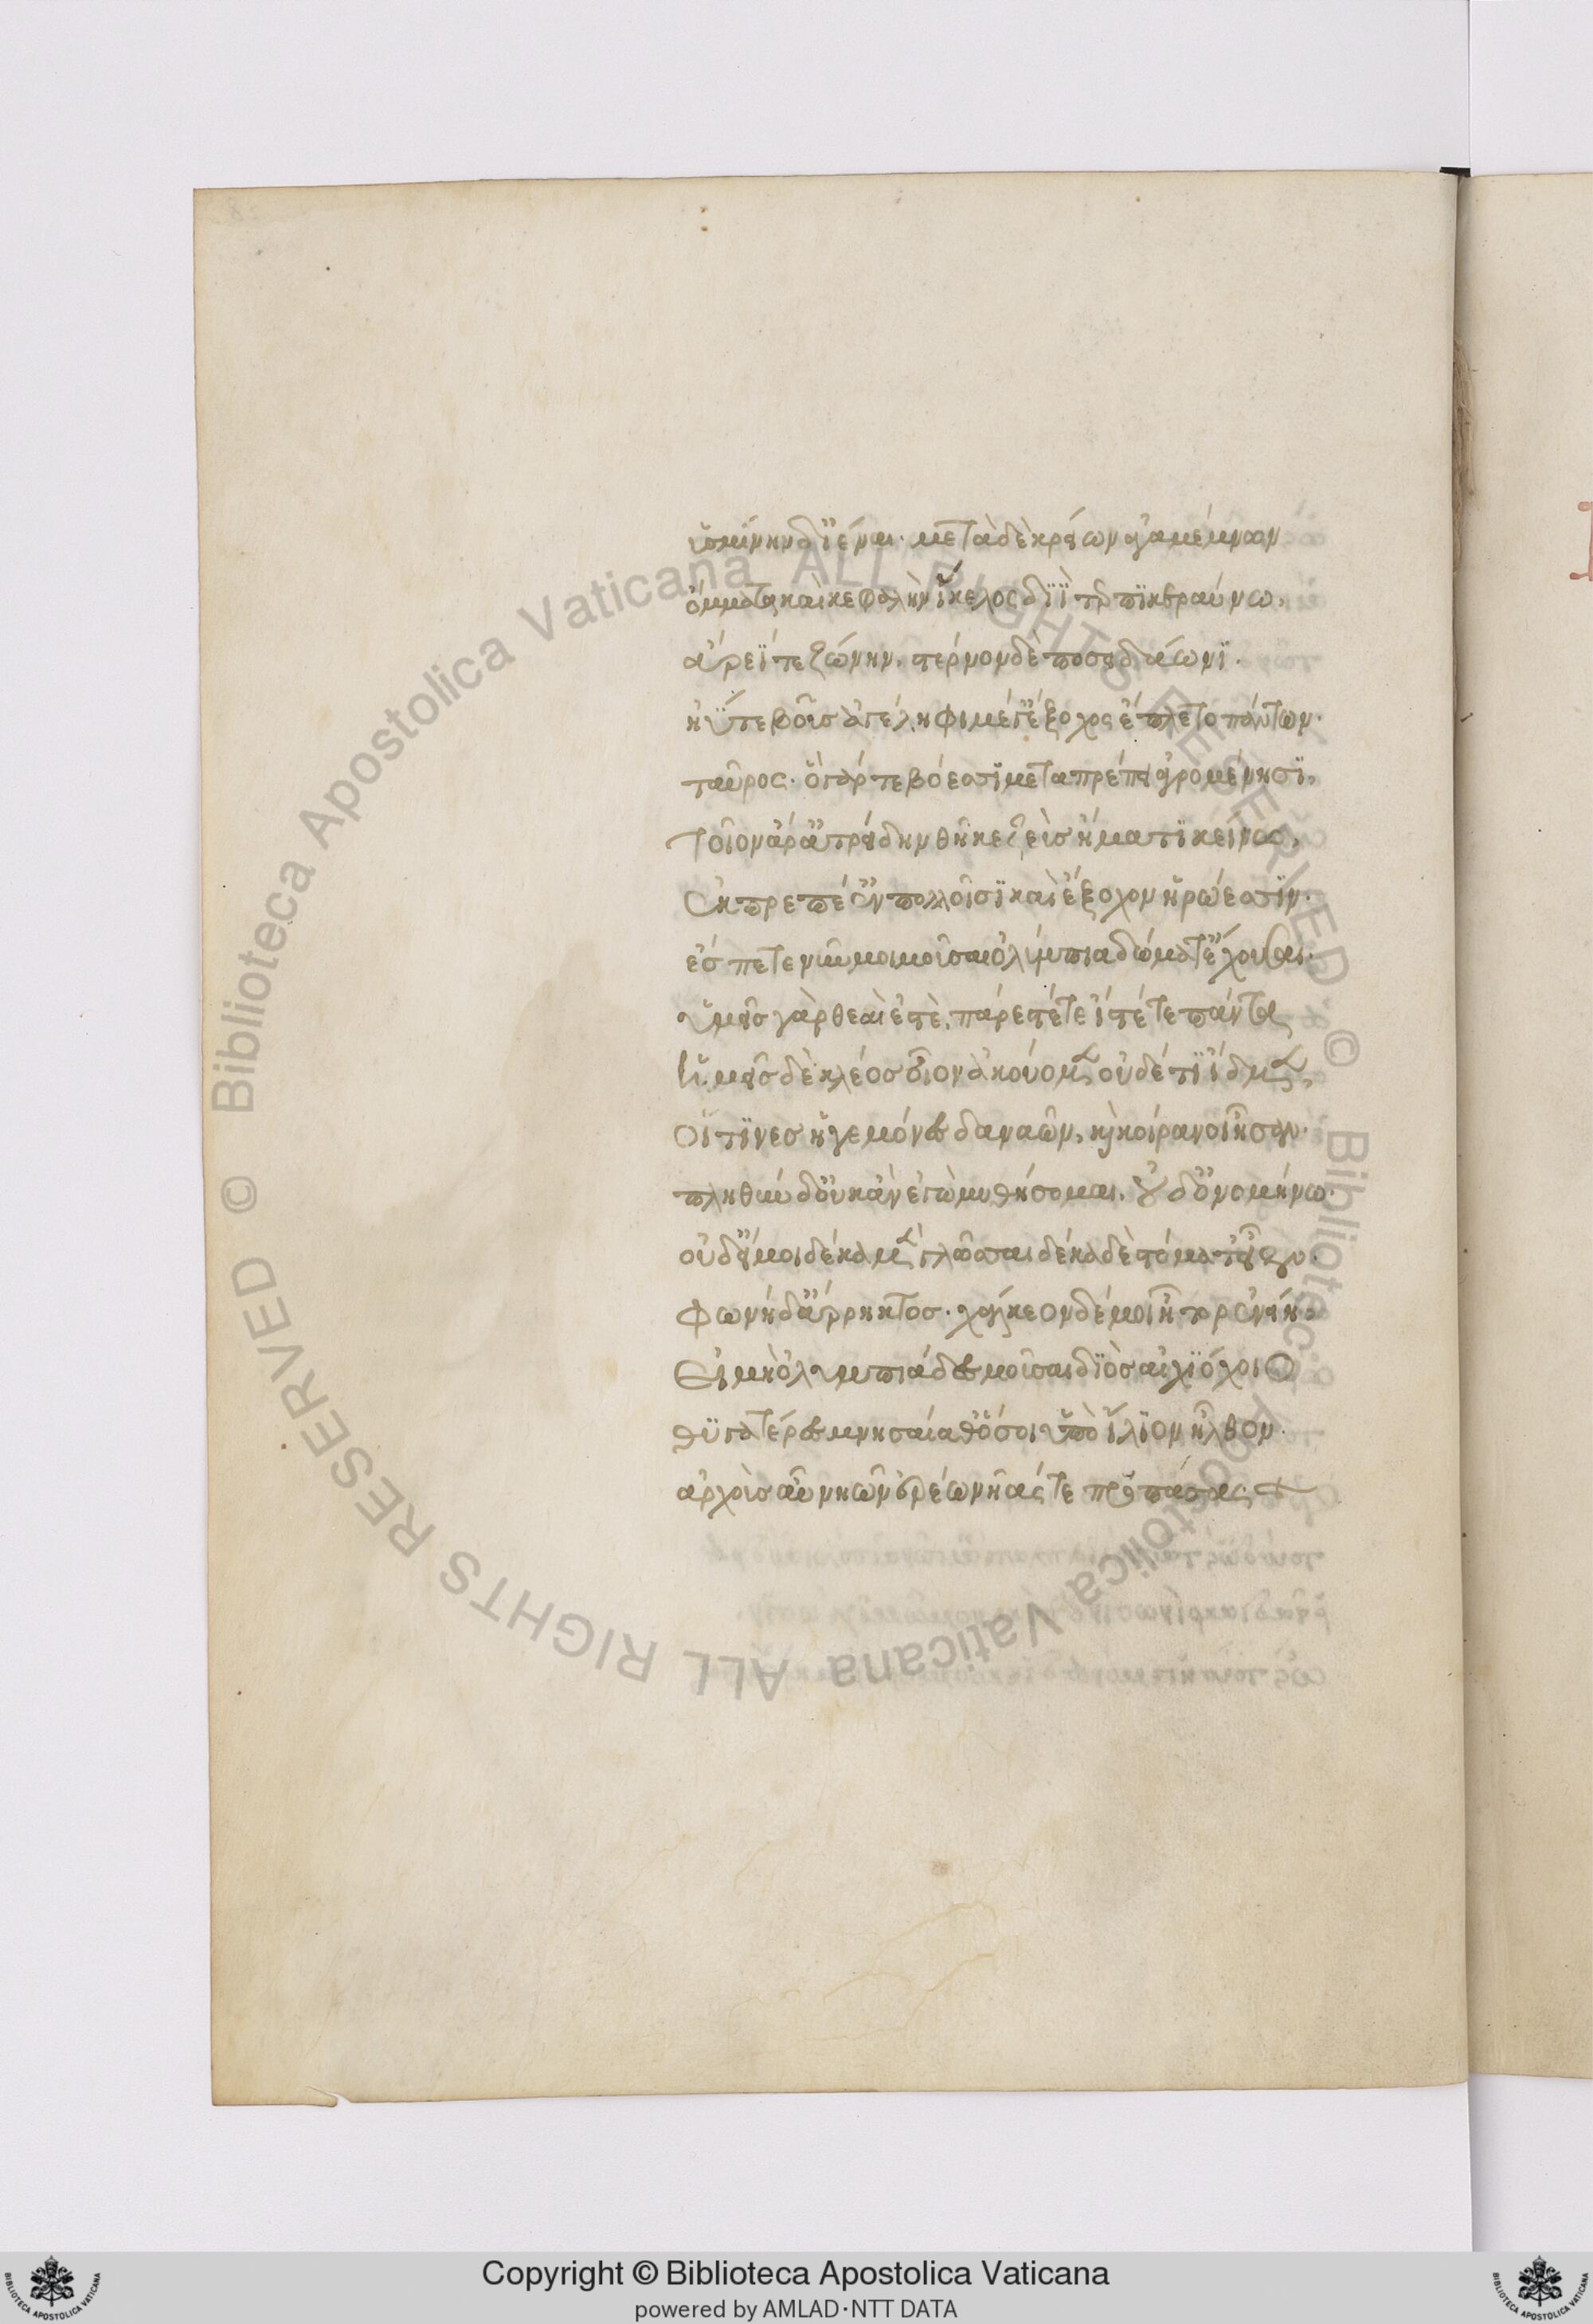 ὑσμίνην δ' ἰέναι· μετὰ δὲ κρείων ἀγαμέμνων
ὄμματα καὶ κεφαλὴν ἴκελος διῒ τερπικεραύνω,
ἄρεϊ τε ζώνην, στέρνον δὲ ποσειδάωνι.
ἠΰτε βοῦς ἀγέληφι μέγ' ἔξοχος ἔπλετο πάντων·
ταῦρος· ὃ γάρ τε βόεσσι μεταπρέπει ἀγρομένησι,
τοῖον ἄρ' ἀτρείδην θῆκε ζεὺς ἤματι κείνω,
ἐκπρεπέ' ἐν πολλοῖσι καὶ ἔξοχον ἡρώεσσιν·
ἔσπετε νῦν μοι μοῦσαι ὀλύμπια δώματ' ἔχουσαι·
ὑμεῖς γὰρ θεαί ἐστε, πάρεστέ τε ἴστέ τε πάντα
ἡμεῖς δὲ κλέος οἶον ἀκούομεν οὐδέ τι ἴδμεν,
οἵτινες ἡγεμόνες δαναῶν, καὶ κοίρανοι ἦσαν·
πληθὺν δ' οὐκ ἂν ἐγὼ μυθήσομαι, οὐδ' ὀνομήνω·
οὐδ' εἴ μοι δέκα μὲν γλῶσσαι δέκα δὲ στόματ' εἶεν·
φωνὴ δ' ἄρρηκτος· χάλκεον δέ μοι ἦτορ ἐνείη·
εἰ μὴ ὀλυμπιάδες μοῦσαι διὸς αἰγιόχοιο
θυγατέρες μνησαίαθ' ὅσοι ὑπὸ ἴλιον ἦλθον·
ἀρχοὺς αὖ νηῶν ἐρέω νῆάς τε προπάσας·
Copyright © Biblioteca Apostolica Vaticana
powered by AMLAD·NTT DATA
© Biblioteca Apostolica Vaticana ALL RIGHTS RESERVED
© Biblioteca Apostolica Vaticana ALL RIGHTS RESERVED